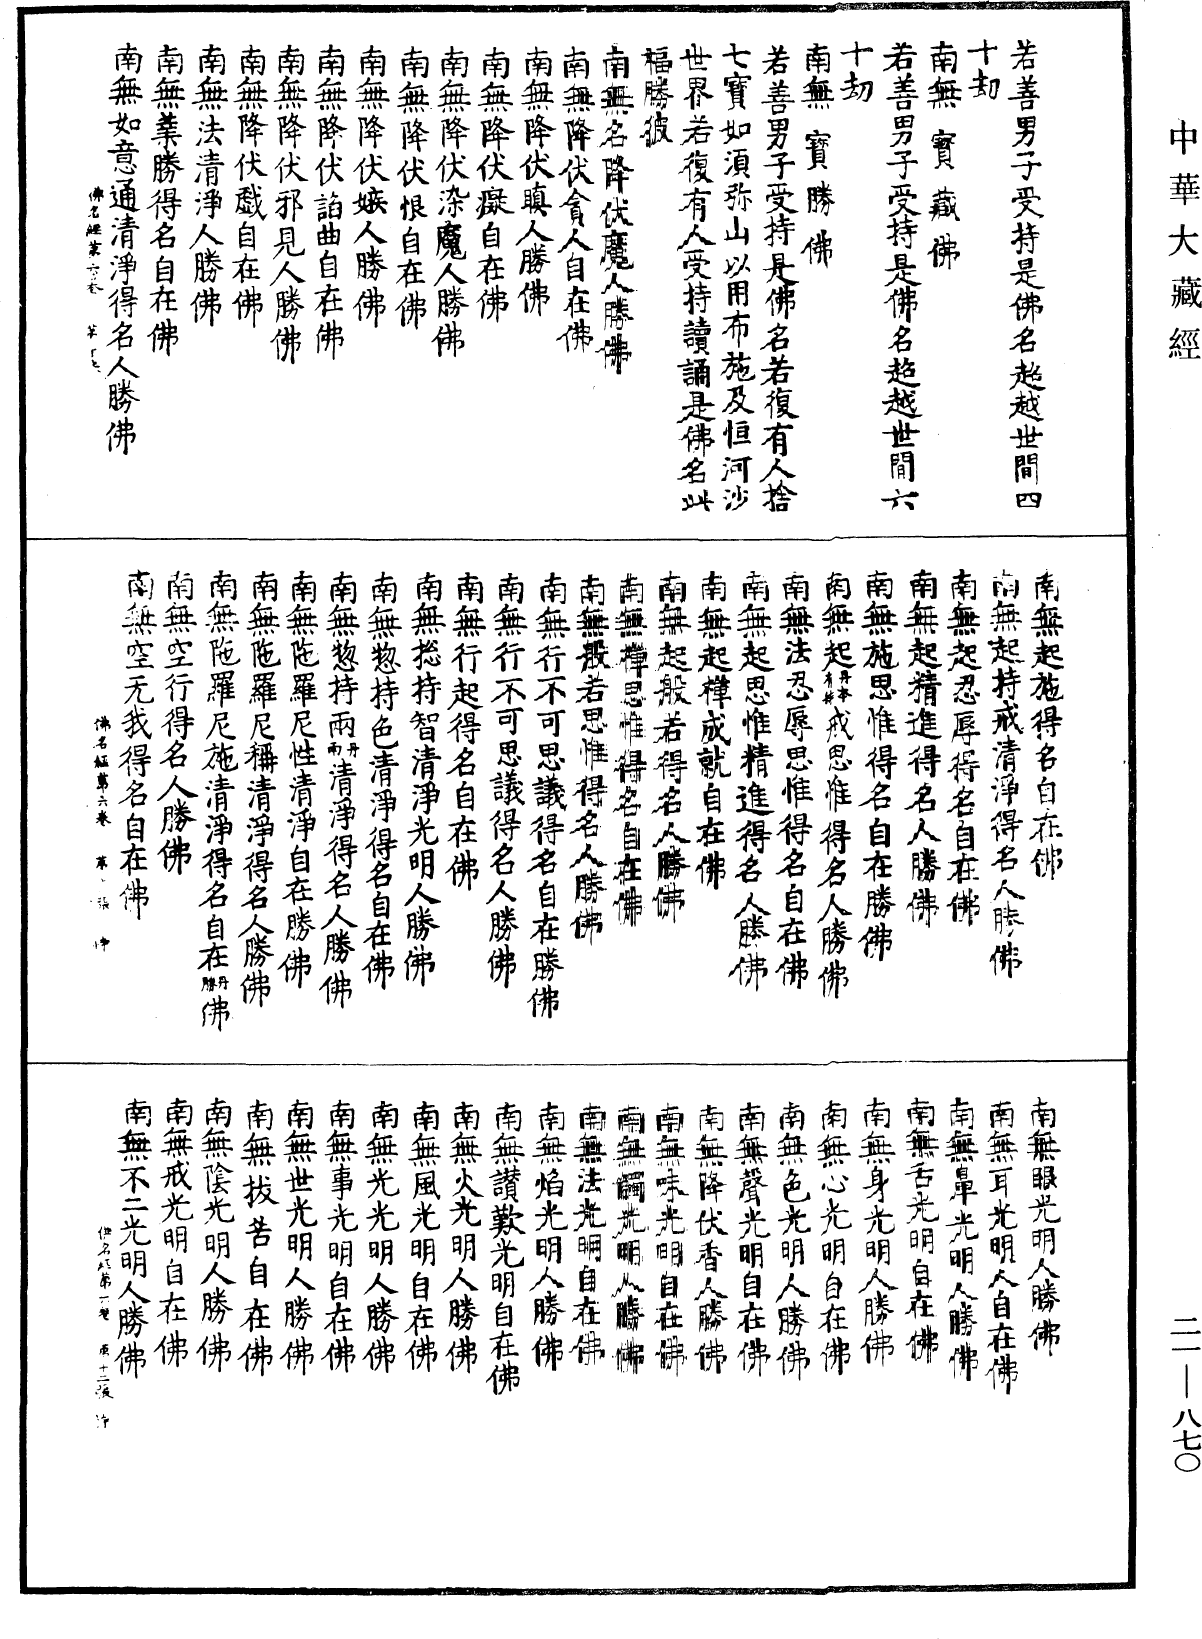 中華大藏經
若善男子受持是佛名超越世間四
十劫
南無寶藏佛
若善男子受持是佛名超越世間六
十劫
南無寶勝佛
若善男子受持是佛名若復有人捨
七寶如須弥山以用布施及恒河沙
世界若復有人受持讀誦是佛名此
福勝彼
南無名降伏魔人勝佛
南無降伏貪人自在佛
南無降伏瞋人勝佛
南無降伏癡自在佛
南無降伏染魔人勝佛
南無降伏恨自在佛
南無降伏嫉人勝佛
南無降伏諂曲自在佛
南無降伏邪見人勝佛
南無降伏戲自在佛
南無法清淨人勝佛
南無業勝得名自在佛
南無如意通清淨得名人勝佛
佛名經第六卷
南無起施得名自在佛
南無起持戒清淨得名人勝佛
南無起忍辱得名自在佛
南無起精進得名人勝佛
南無施思惟得名自在勝佛
南無起丹本有持戒思惟得名人勝佛
南無法忍辱思惟得名自在佛
南無起思惟精進得名人勝佛
南無起禪成就自在佛
南無起般若得名人勝佛
南無禪思惟得名自在佛
南無般若思惟得名人勝佛
南無行不可思議得名自在勝佛
南無行不可思議得名人勝佛
南無行起得名自在佛
南無捴持智清淨光明人勝佛
南無惣持色清淨得名自在佛
南無惣持兩丹雨清淨得名人勝佛
南無陁羅尼性清淨自在勝佛
南無陁羅尼稱清淨得名人勝佛
南無陁羅尼施清淨得名自在丹勝佛
南無空行得名人勝佛
南無空无我得名自在佛
佛名經第六卷
南無眼光明人勝佛
南無耳光明人自在佛
南無鼻光明人勝佛
南無舌光明自在佛
南無身光明人勝佛
南無心光明自在佛
南無色光明人勝佛
南無聲光明自在佛
南無降伏香人勝佛
南無味光明自在佛
南無觸光明人勝佛
南無法光明自在佛
南無焰光明人勝佛
南無讃歎光明自在佛
南無火光明人勝佛
南無風光明自在佛
南無光光明人勝佛
南無事光明自在佛
南無世光明人勝佛
南無拔苦自在佛
南無陰光明人勝佛
南無戒光明自在佛
南無不二光明人勝佛
十二張
二一—八七〇